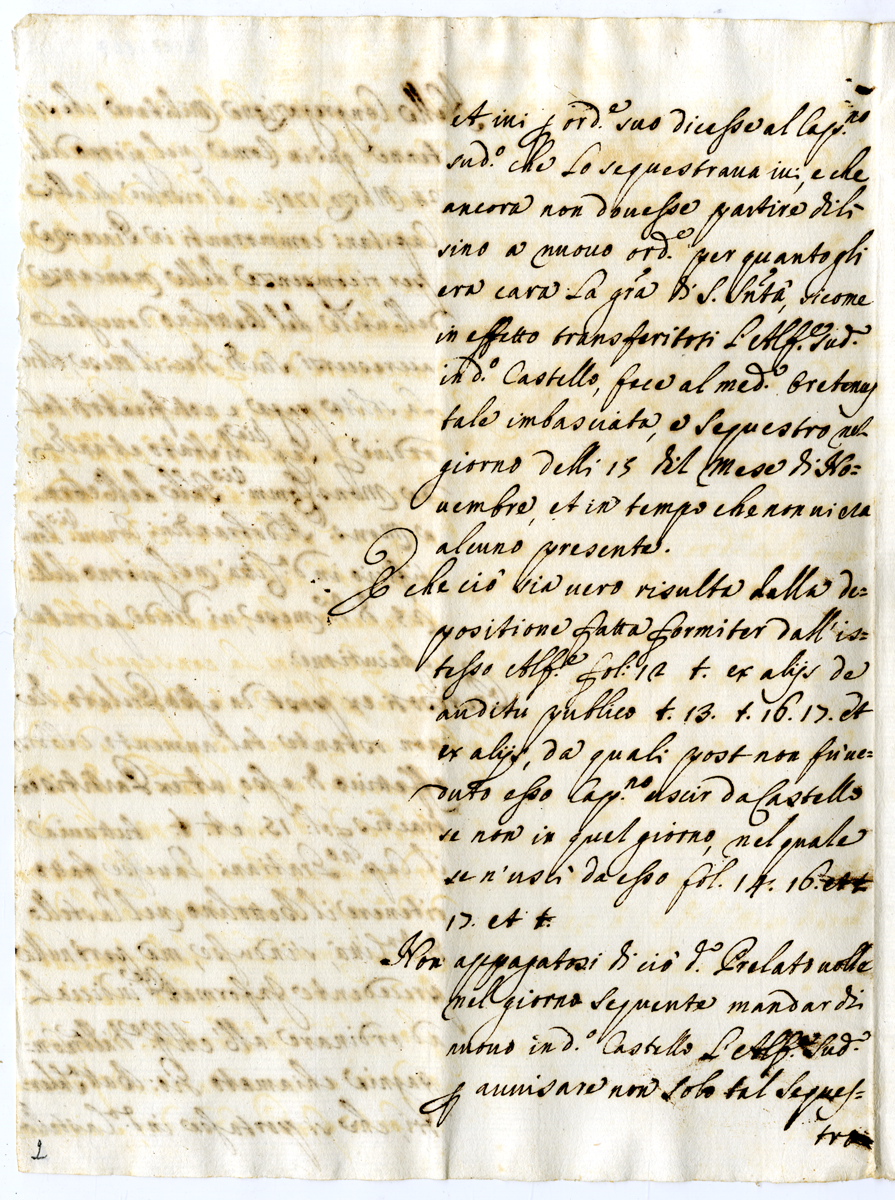 et iui ꝑ ord.e suo dicesse al Cap.no
sud.o che Lo sequestraua iui, e che
ancora non douesse partire di li
sino a nuouo ord.e per quanto gli
era cara La grã di S. Sntà, sicome
in effetto transferitoti L'Alf.e sud.o
in d.o Castello, fece al med.o
tale imbasciata, e sequestro nel
giorno delli 15 del Mese di No=
uembre, et in tempo che non ui era
alcuno presente.
E che ciò sia uero risulta dalla de=
positione fatta formiter dall'is=
tesso Alf.e fol. 12 t. ex alijs de
auditu publico t. 13. t. 16. 17. et
ex alijs, da quali post non fù ue=
duto esso Cap.no uscir da Castello
se non in quel giorno, nel quale
se n'uscì da esso fol. 14. 16.
17. et t.
Non appagatosi di ciò d.o Prelato uolle
nel giorno sequente mandar di
nuouo in d.o Castello L'Alf.e sud.o
ꝑ auuisare non solo tal seques=
tro
2